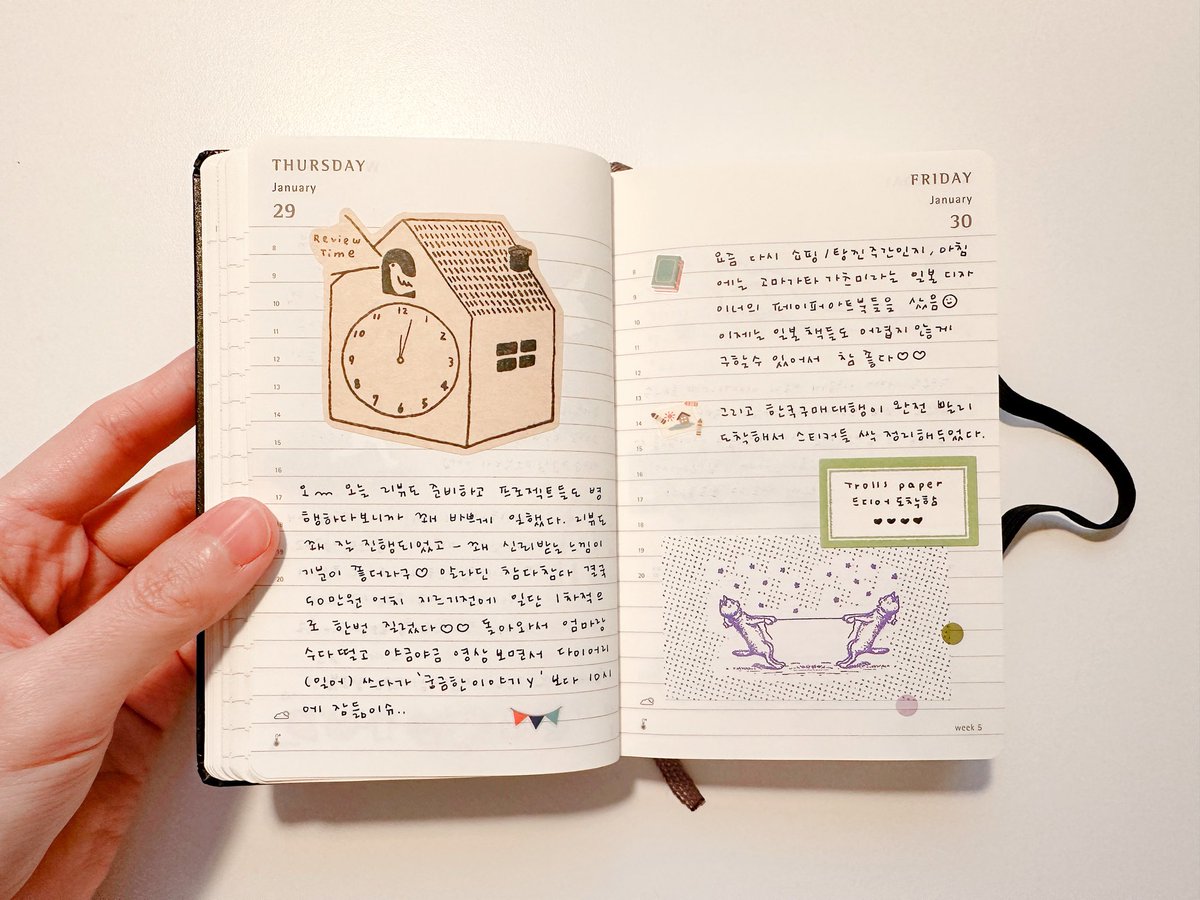 THURSDAY
January
29
Review
Time
12
1
2
3
4
5
6
7
8
9
10
11
8
9
10
11
12
13
14
15
16
17
18
19
20
오~ 오늘 리뷰도 준비하고 프로젝트들도 병
행하다보니까 꽤 바쁘게 일했다. 리뷰도
꽤 잘 진행되었고 - 꽤 신뢰받는 느낌이
기분이 좋더라구♡ 알라딘 참다참다 결국
50만원 어치 지르기전에 일단 1차적으
로 한번 질렀다♡♡ 돌아와서 엄마랑
수다떨고 야금야금 영상보면서 다이어리
(일어) 쓰다가 '궁금한이야기Y' 보다 10시
에 잠듦이슈..
FRIDAY
January
30
8
9
10
11
12
13
14
15
16
17
18
19
20
요즘 다시 쇼핑/탕진주간인지, 아침
에는 고마가타 가츠미라는 일본 디자
이너의 페이퍼아트북들을 샀음☺
이제는 일본책들도 어렵지 않게
구할수 있어서 참 좋다♡♡
그리고 한국구매대행이 완전 빨리
도착해서 스티커들 싹 정리해두었다.
Trolls paper
드디어 도착함
♥♥♥♥
week 5